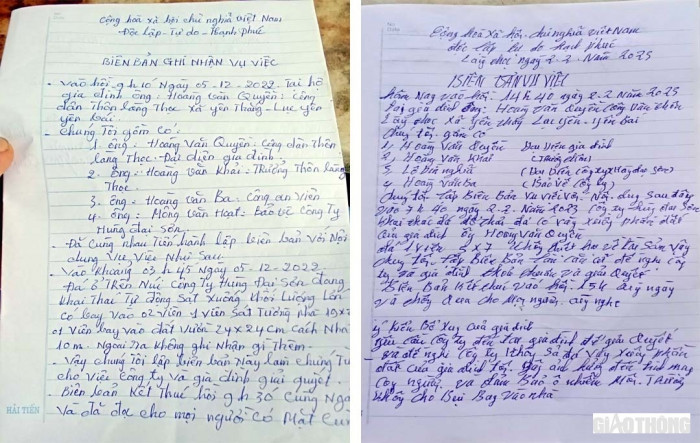 Cộng hòa xã hội chủ nghĩa việt Nam
Độc Lập - Tự do - Hạnh phúc
BIÊN BẢN GHI NHẬN VỤ VIỆC
- Vào hồi 9h10 Ngày 05-12-2022. Tại hộ
gia đình ông: Hoàng Văn Quyền: Công
dân Thôn Làng Thọc xã yên Thắng - Lục yên
yên bái.
- Chúng Tôi gồm có:
1. ông: Hoàng Văn Quyền: Công dân Thôn
Làng Thọc: Đại diện gia đình.
2. ông: Hoàng Văn Khải: Trưởng Thôn Làng
Thọc.
3. ông: Hoàng Văn Ba: Công an Viên
4. ông: Mông Văn Hoạt: Bảo vệ Công Ty
Hùng đại sơn.
- Đã Cùng nhau Tiến hành lập biên bản Với Nội
dung Vụ Việc Như Sau.
- Vào Khoảng 03h45 Ngày 05-12-2022
Đá ở Trên Núi Công Ty Hùng Đại Sơn đang
khai Thác Tự động Sạt xuống Khối Lượng Lớn
có bay vào 02 Viên 1 Viên Sát Tường nhà 19x
01 Viên bay vào đất Vườn 24x24cm Cách Nhà
10m. Ngoài Ra không ghi Nhận gì Thêm.
- Vậy chúng Tôi lập biên bản Này làm chứng Từ
cho Việc Công Ty và gia đình giải quyết.
- Biên bản Kết Thúc hồi 9h30 Cùng Ngà
Và đã đọc cho mọi người Có Mặt Cùn
HẢI TIẾN
Cộng hoà xã hội chủ nghĩa việt Nam
độc lập tự do hạnh phúc
ngày 2-2 Năm 2023
BIÊN BẢN VỤ VIỆC
Hôm Nay vào hồi 14h40 ngày 2-2 Năm 2023
Tại gia đình ông Hoàng Văn Quyền Công dân thôn
Làng thọc xã yên thắng Lục yên - yên Bái
chúng tôi gồm có
1, Hoàng Văn Quyền Đại diện gia đình
2, Hoàng Văn Khải (Trưởng thôn)
3, Lê (Đại Diện Công ty Hùng đại sơn)
4, Hoàng Văn Ba (Bảo vệ Công ty)
chúng tôi lập Biên Bản vụ việc với Nội dung Sau
vào 7h40 ngày 2-2 Năm 2023 công ty hùng đại Sơn
khai thác đá đá có văng xuống phần đất
của gia đình ông Hoàng Văn Quyền
đá 1 viên 5x7 không thiệt hại về tài Sản vậy
chúng tôi lập Biên Bản làm căn cứ để nghị công
ty và gia đình khắc phục và giải quyết
Biên Bản kết thúc vào hồi 15h cùng ngày
và thông qua cho mọi người cùng nghe
ý kiến Bổ xung của gia đình
yêu cầu công ty đến tại gia đình để giải quyết
và đề nghị công ty không để đá văng xuống phần
đất của gia đình tôi. gây ảnh hưởng đến tính mạng
con người và đảm Bảo ô nhiễm Môi Trường
không cho Bụi Bay vào nhà
GIAOTHONG